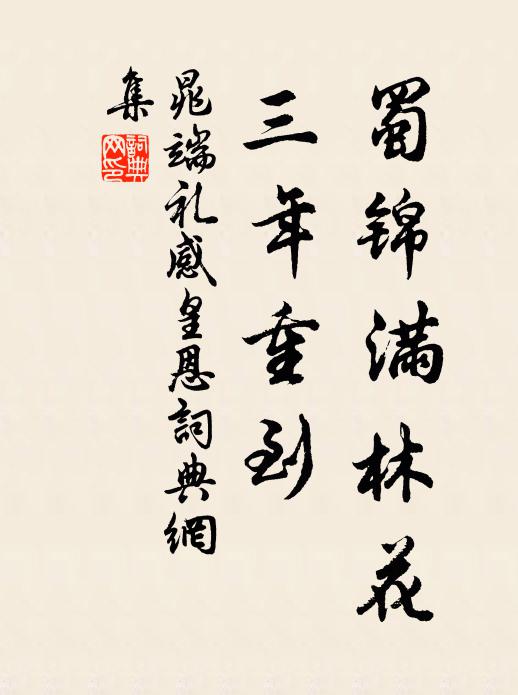 蜀锦满林花
三年重到
晁端礼感皇恩詞典網
集
詞典网印